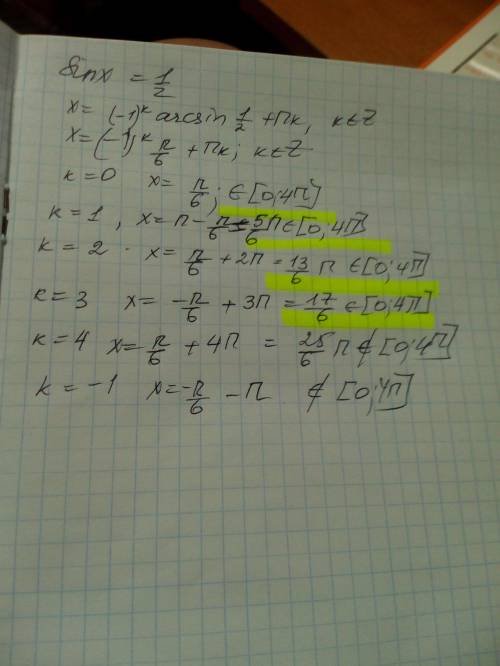 Sinx = 1/2
x = (-1)^k arcsin 1/2 + πk, k∈Z
x = (-1)^k π/6 + πk; k∈Z
k=0 x = π/6; ∈[0;4π]
k=1, x = π - π/6 = 5/6 π ∈[0;4π]
k=2 · x = π/6 + 2π = 13/6 π ∈[0;4π]
k=3 x = -π/6 + 3π = 17/6 ∈[0;4π]
k=4 x = π/6 + 4π = 25/6 π ∉ [0;4π]
k=-1 x = -π/6 - π ∉ [0;4π]